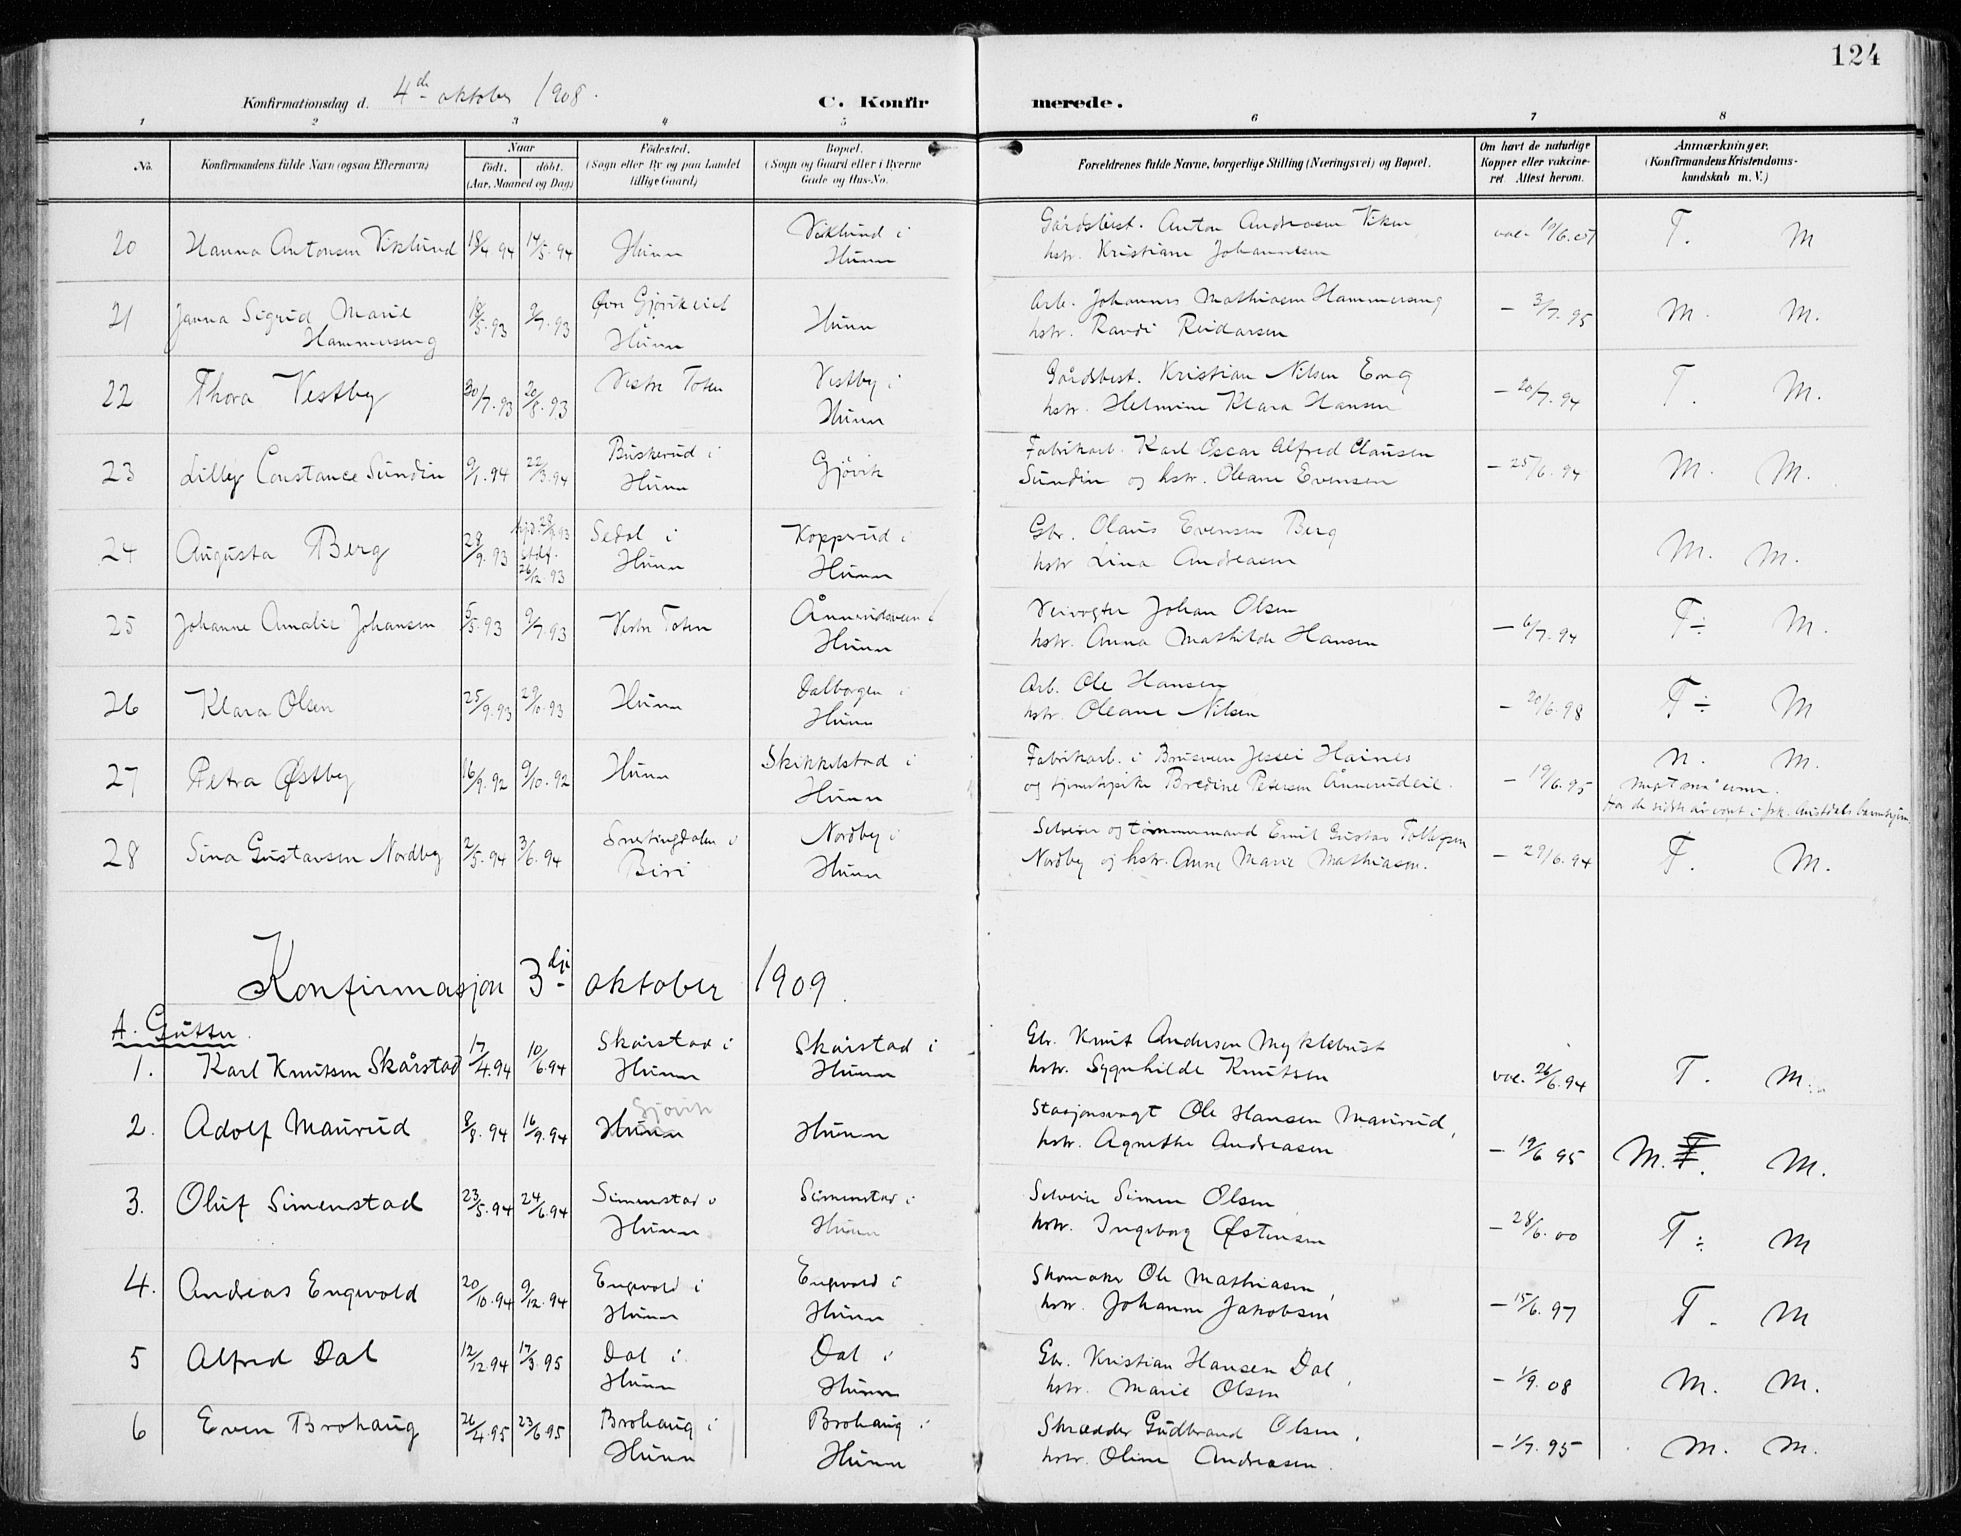 124
Konfirmationsdag d. 4de oktober 1908.
C. Konfirmerede.
1 2 3 4 5 6 7 8
No. Konfirmandens fulde Navn (ogsaa Efternavn) Naar födt. döbt. (Aar, Maaned og Dag) Födested. (Sogn eller By og paa Landet tillige Gaard) Bopæl. (Sogn og Gaard eller i Byerne Gade og Hus-No. Forældrenes fulde Navne, borgerlige Stilling (Næringsvei) og Bopæl. Om havt de naturlige Kopper eller vakcineret. Attest herom. Anmærkninger. (Konfirmandens Kristendomskundskab m. V.)
20 Hanna Antonsen Viklund 18/4.94 14/5.94 Hunn Viklund i Hunn
Gårdsbest. Anton Andreasen Viken
hstr. Kristiane Johannesen
T. M
21 Janna Sigrid Marie Hammerseng 18/5.93 9/7.93 Øvre Gjøvikeiet Hunn Hunn
Arb. Johannes Mathiasen Hammerseng
hstr. Randi Reidarsen
- 3/7.95 M. M.
22 Thora Vestby 30/7.93 20/8.93 Vestre Toten Vestby i Hunn
Gårdsbest. Kristian Nilsen Eng
hstr. Helmine Klara Hansen
- 20/7.94 T. M.
23 Lilly Constance Sundin 9/1.94 22/3.94 Buskerud i Hunn Gjøvik
Fabrikarb. Karl Oscar Alfred Clausen
Sundin og hstr. Oleane Evensen
- 25/6.94 M. M.
24 Augusta Berg 28/9.93 hjd. 29/9.93 stdf. 26/12.93 Sedal i Hunn Kopperud i Hunn
Gbr. Olaus Evensen Berg
hstr Lina Andreasen
M. M.
25 Johanne Amalie Johansen 5/5.93 9/7.93 Vestre Toten Ånnerudsveen i Hunn
Veivogter Johan Olsen
hstr. Anna Mathilde Hansen
- 6/7.94 T÷ M.
26 Klara Olsen 25/9.93 29/10.93 Hunn Dalborgen i Hunn
Arb. Ole Hansen
hstr. Oleane Nilsen
- 20/6.98 T÷ M
27 Petra Østby 16/9.92 9/10.92 Hunn Skikkelstad i Hunn
Fabrikarb. i Brusveen Jessei Haines
og tjenestepike Bredine Petersen Ånnerudeie.
- 19/6.95 M. M.
Meget små evner.
28 Sina Gustavsen Nordby 2/5.94 3/6.94 Snertingdalen i Biri Nordby i Hunn
Selveier og tømmermand Emil Gustav Tollefsen
Nordby og hstr. Anne Marie Mathiasen.
- 29/6.94 T. M.
Konfirmasjon 3dje oktober 1909.
A. Gutter.
1. Karl Knutsen Skårstad 17/4.94 10/6.94 Skårstad i Hunn Skårstad i Hunn
Gbr. Knut Andersen Myklebust
hstr. Sygnhilde Knutsen
vac. 26/6.94 T. M.
2. Adolf Maurud 8/8.94 16/9.94 Gjøvik Hunn Hunn
Stasjonsvogt Ole Hansen Maurud,
hstr. Agnethe Andreasen
- 19/6 95 M. T. M.
3. Oluf Simenstad 23/5.94 24/6.94 Simenstad i Hunn Simenstad i Hunn
Selveier Simen Olsen
hstr. Ingeborg Østensen
- 28/6.00 T÷ M
4. Andreas Engevold 20/10.94 9/12.94 Engevold i Hunn Engevold i Hunn
Skomaker Ole Mathiasen,
hstr. Johanne Jakobsen
- 15/6.97 T. M
5 Alfred Dal 12/12.94 17/3.95 Dal i Hunn Dal i Hunn
Gbr. Kristian Hansen Dal,
hstr. Marie Olsen
- 1/9.08 M. M.
6 Even Brohaug 26/4.95 23/6 95 Brohaug i Hunn Brohaug i Hunn
Skrædder Gudbrand Olsen,
hstr. Oline Andreasen.
- 1/7.95 M. M.